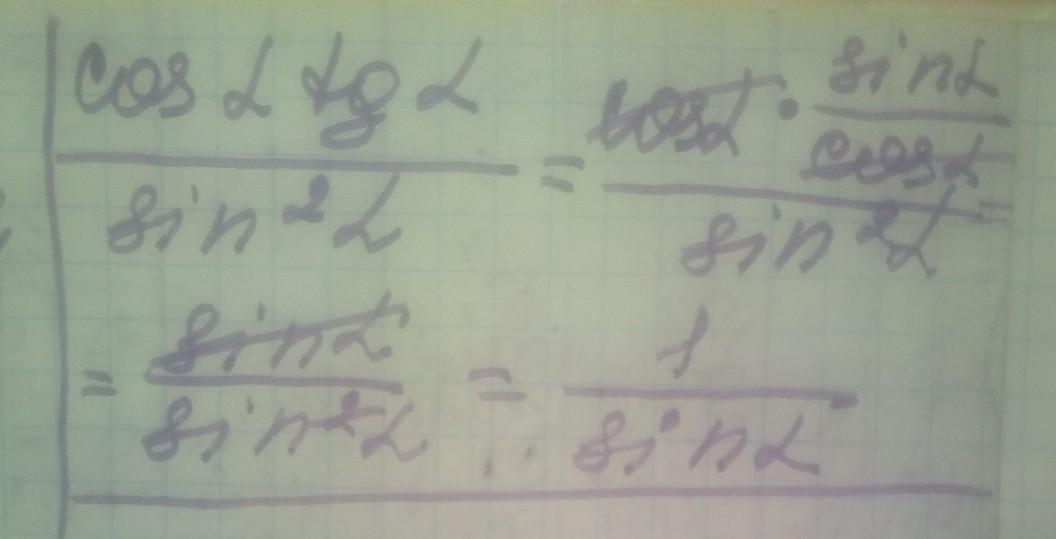 cos α tg α / sin² α = cos α · sin α / cos α / sin² α =
= sin α / sin² α = 1 / sin α